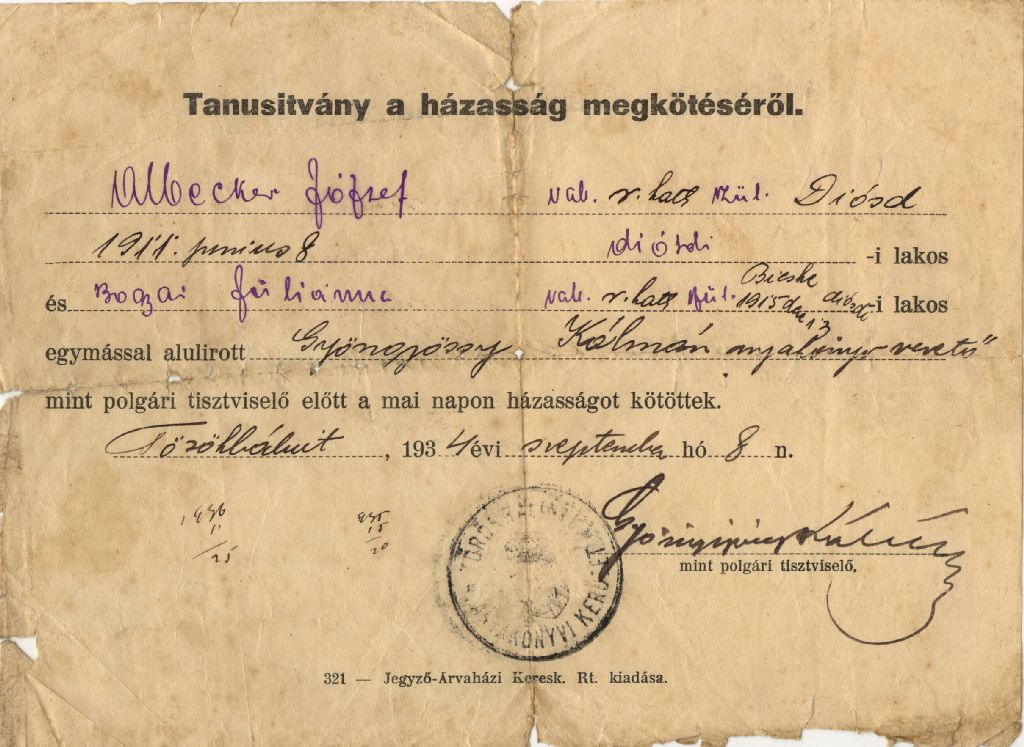 Tanusitvány a házasság megkötéséről.
Albecker József vall. r. kath szül. Diósd
1911. junius 8 diósdi -i lakos
és Bogzai Juliánna vall. r. kath szül. Bicske 1915 dec 13 diósdi -i lakos
egymással alulirott Gyöngyössy Kálmán anyakönyvvezető
mint polgári tisztviselő előtt a mai napon házasságot kötöttek.
Törökbálint, 1934 évi szeptember hó 8 n.
1936
11
25
935
15
20
Gyöngyössy Kálmán
mint polgári tisztviselő.
ANYAKÖNYVI KERÜLET
321 — Jegyző-Árvaházi Keresk. Rt. kiadása.